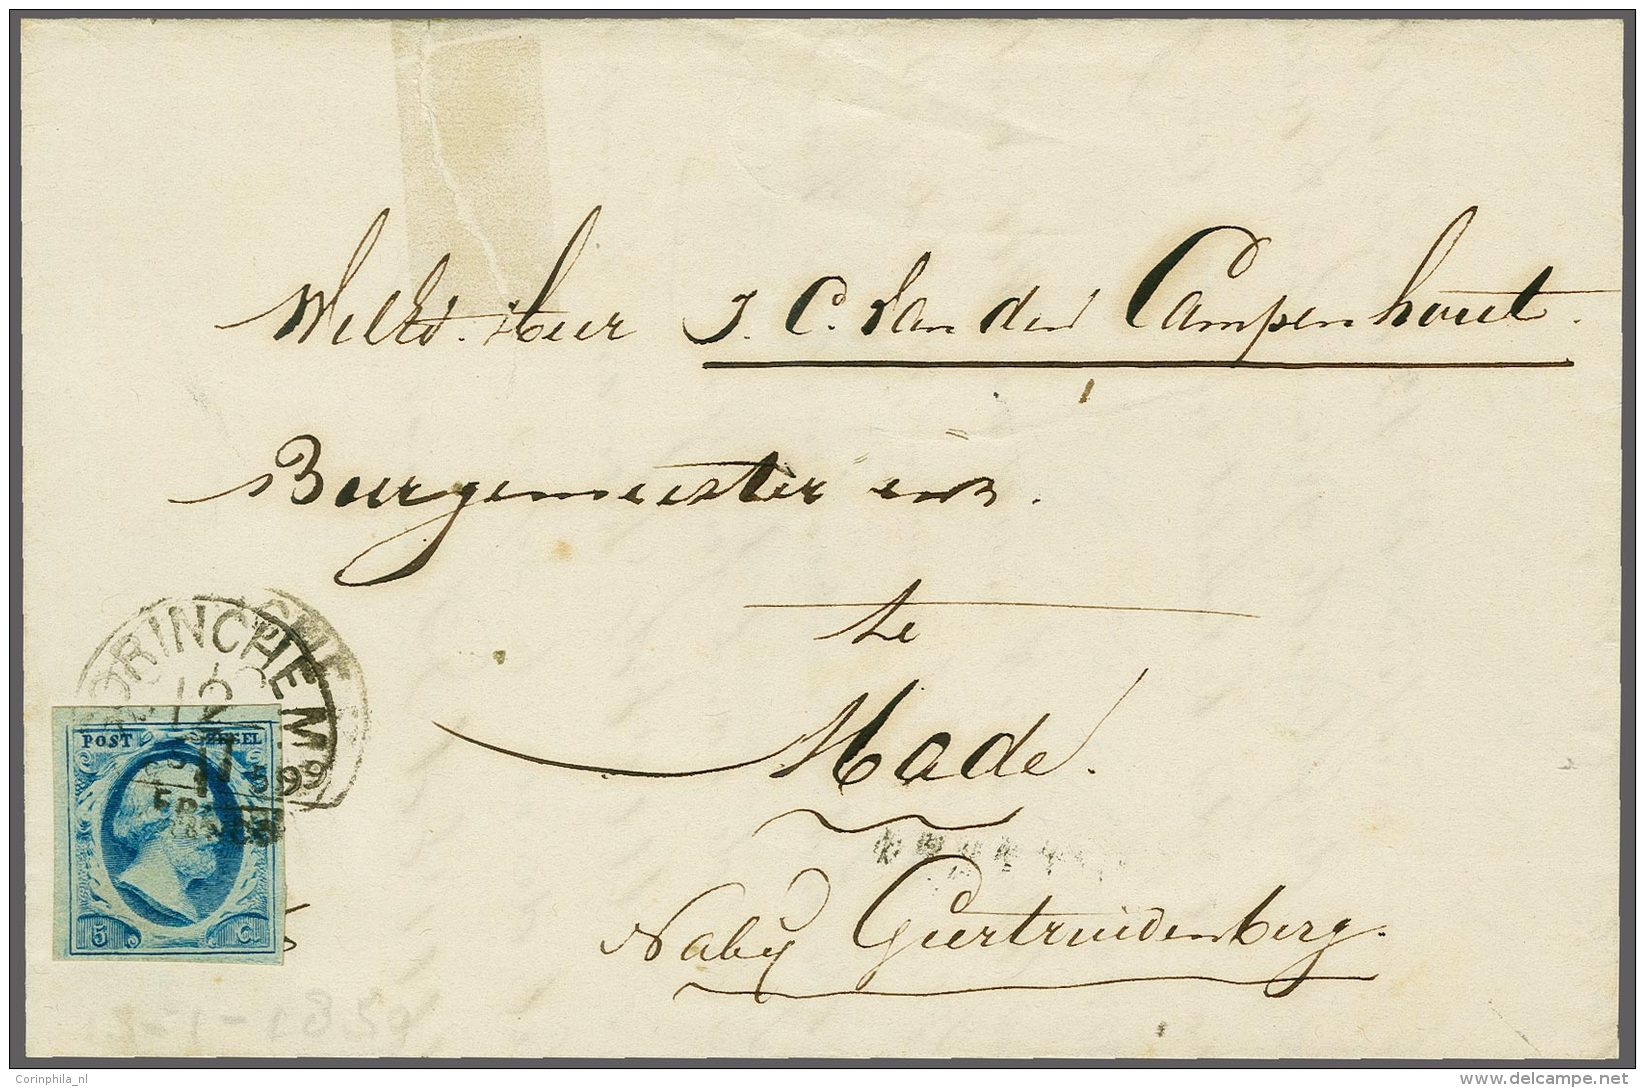 WelEd. Heer J. C. van den Campenhout.
Burgemeester enz.
te
Made.
Nabij Geertruidenberg.
GORINCHEM
POST ZEGEL
5 C
Corinphila_nl
www.delcampe.net